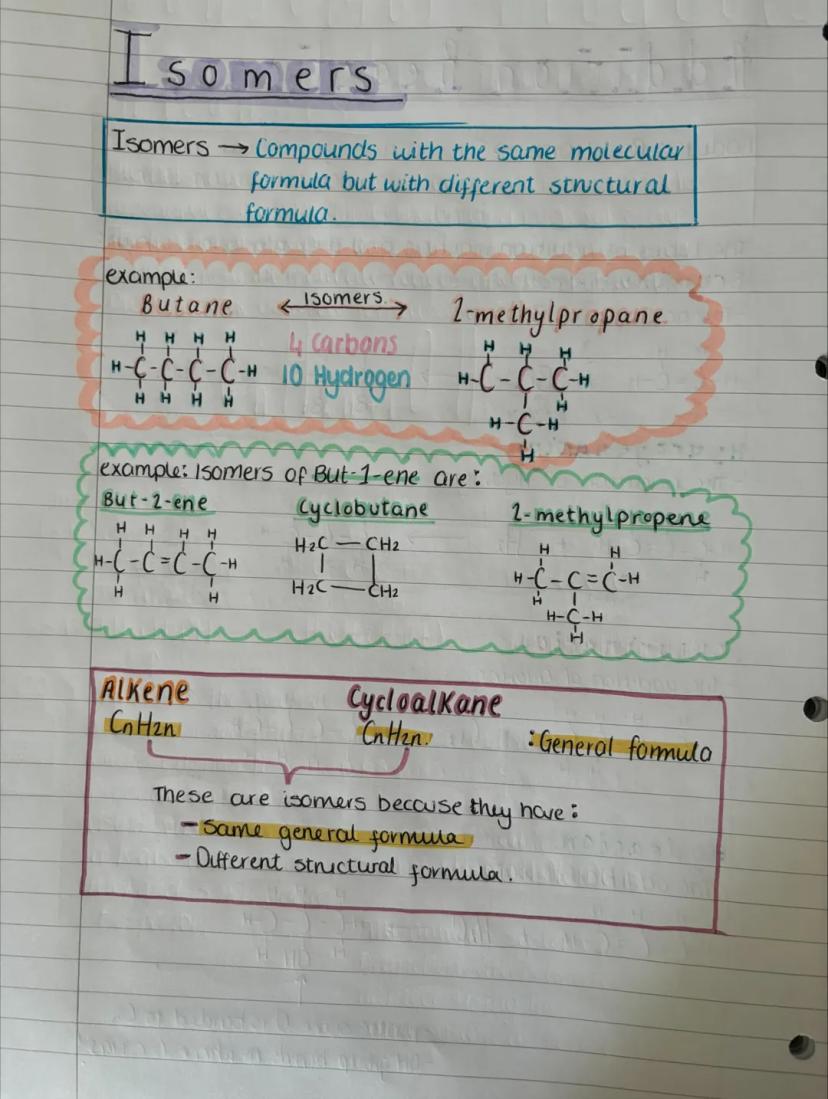 Isomers
Isomers → Compounds with the same molecular
formula but with different structural
formula.
example:
Butane ← Isomers. → 2-methylpropane
H H H H
H-C-C-C-C-H
H H H H
4 Carbons
10 Hydrogen
H H H
H-C-C-C-H
H
H-C-H
H
example: Isomers of But-1-ene are:
But-2-ene
H H H H
H-C-C=C-C-H
H H
Cyclobutane
H2C — CH2
H2C — CH2
2-methylpropene
H H
H-C-C=C-H
H
H-C-H
H
Alkene Cycloalkane
CnH2n CnH2n. :General formula
These are isomers because they have:
- Same general formula
- Different structural formula.